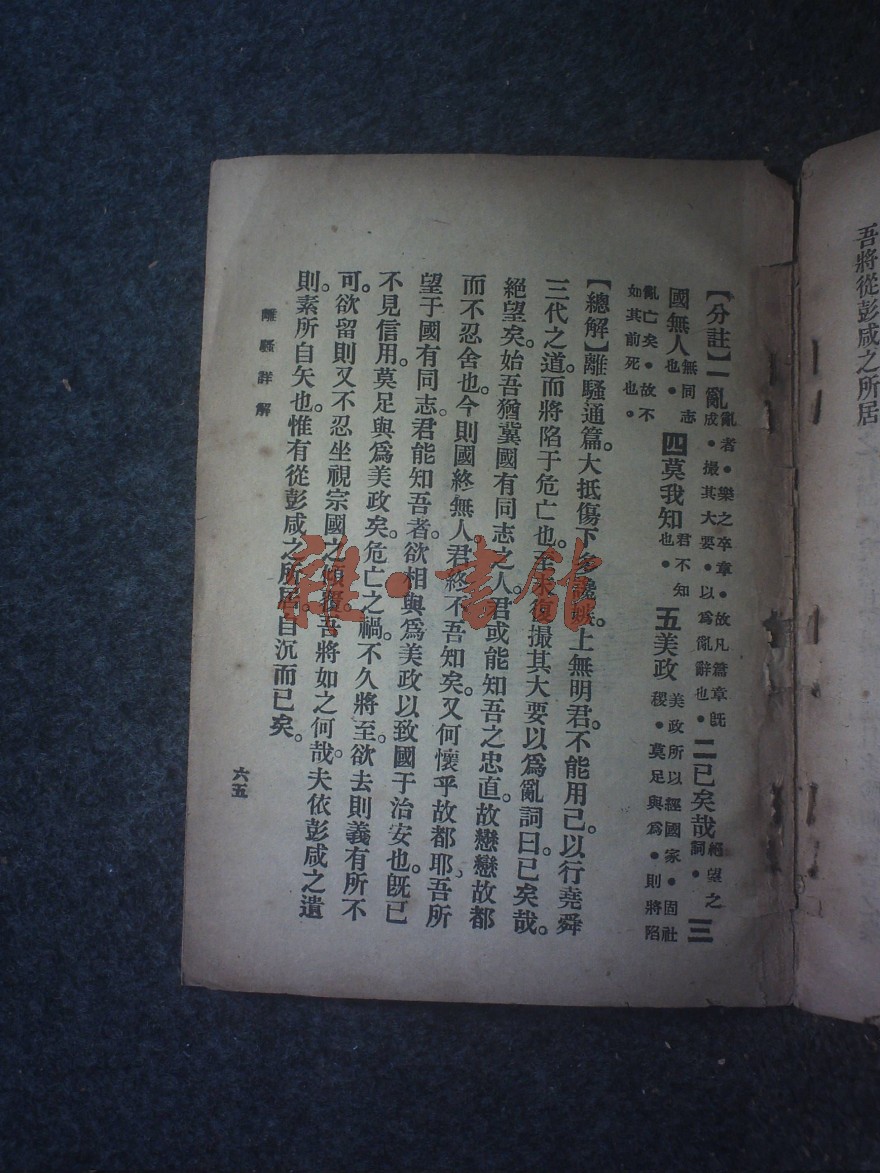 吾將從彭咸之所居
【分註】一亂亂者●樂之卒章●故凡篇章既成●撮其大要●以爲亂辭也●二已矣哉絕望之詞●三
國無人無同志也●四莫我知君不知也●五美政美政所以經國家●固社稷●莫足與爲●則將陷
亂亡矣●故不如其前死也●
【總解】離騷通篇。大抵傷下多讒嫉。上無明君。不能用己。以行堯舜
三代之道。而將陷于危亡也。至末復撮其大要以爲亂詞曰已矣哉。
絕望矣。始吾猶冀國有同志之人。君或能知吾之忠直。故戀戀故都
而不忍舍也。今則國終無人君終不吾知矣。又何懷乎故都耶、吾所
望于國有同志。君能知吾者。欲相與爲美政以致國于治安也。既已
不見信用。莫足與爲美政矣。危亡之禍。不久將至。欲去則義有所不
可。欲留則又不忍坐視宗國之傾覆。吾將如之何哉。夫依彭咸之遺
則。素所自矢也。惟有從彭咸之所居。自沉而已矣。
離騷詳解
六五
雜·書館